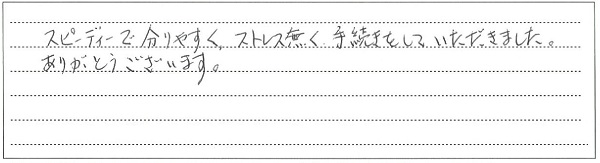 スピーディーで分りやすく、ストレス無く手続きをしていただきました。
ありがとうございます。